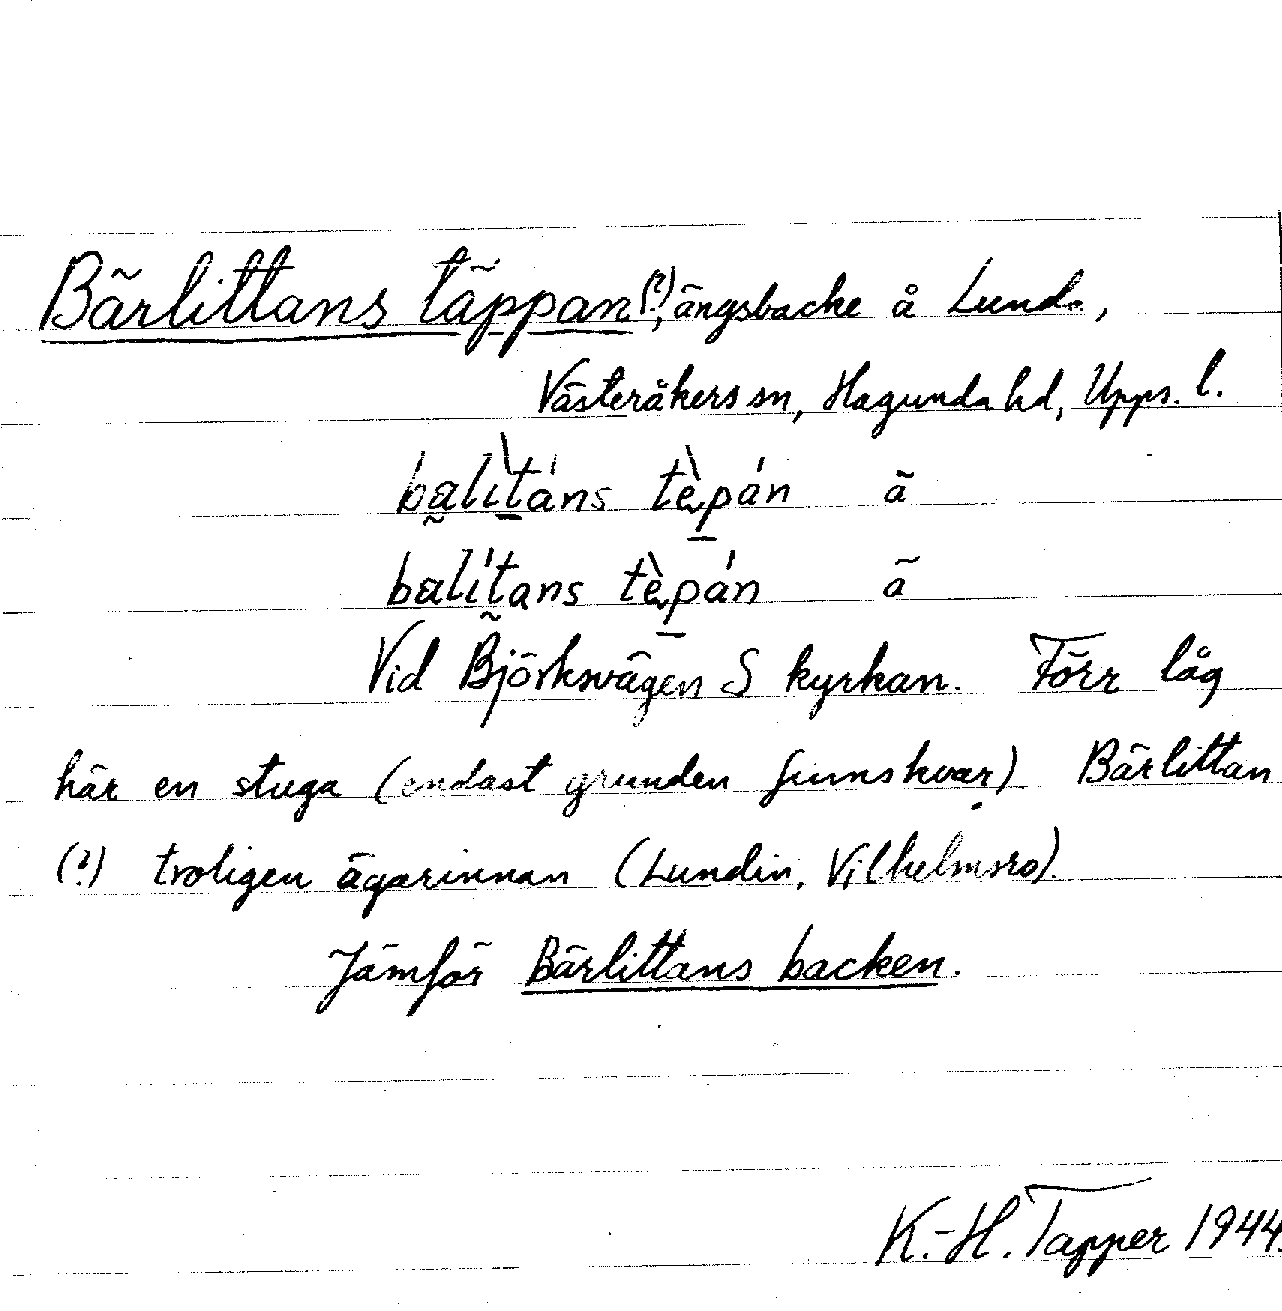 Bärlittans täppan(?), ängsbacke å Lunda,
Västeråkers sn, Hagunda hd, Upps. l.
balìtáns tèpán ã
balítans tèpán ã
Vid Björksvägen S kyrkan. Förr låg
här en stuga (endast grunden finns kvar) Bärlittan
(?) troligen ägarinnan (Lundin, Vilhelmsro).
Jämför Bärlittans backen.
K.-H. Tapper 1944.